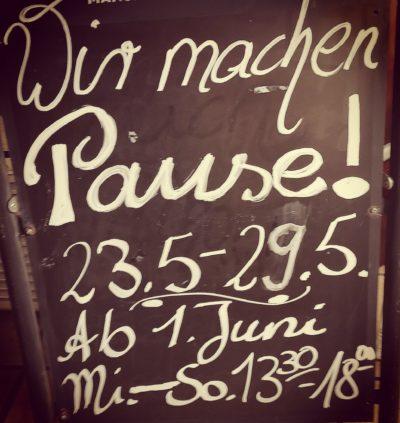 Wir machen
Pause!
23.5-29.5.
Ab 1. Juni
Mi.-So. 13³⁰-18⁰⁰